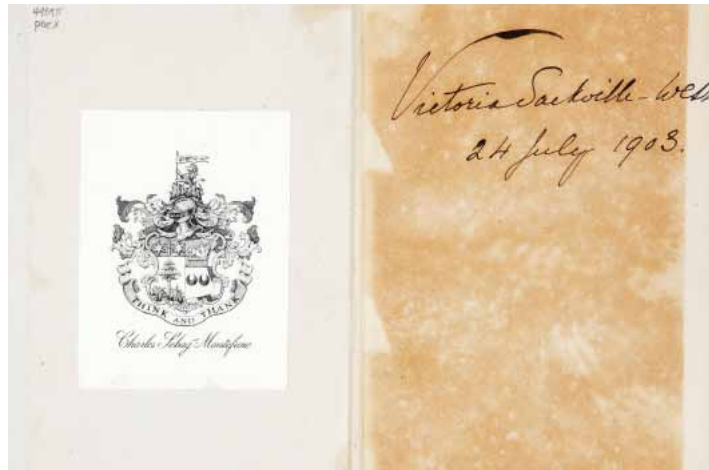 THINK AND THANK
Charles Sebag-Montefiore
Victoria Sackville-West
24 July 1903.